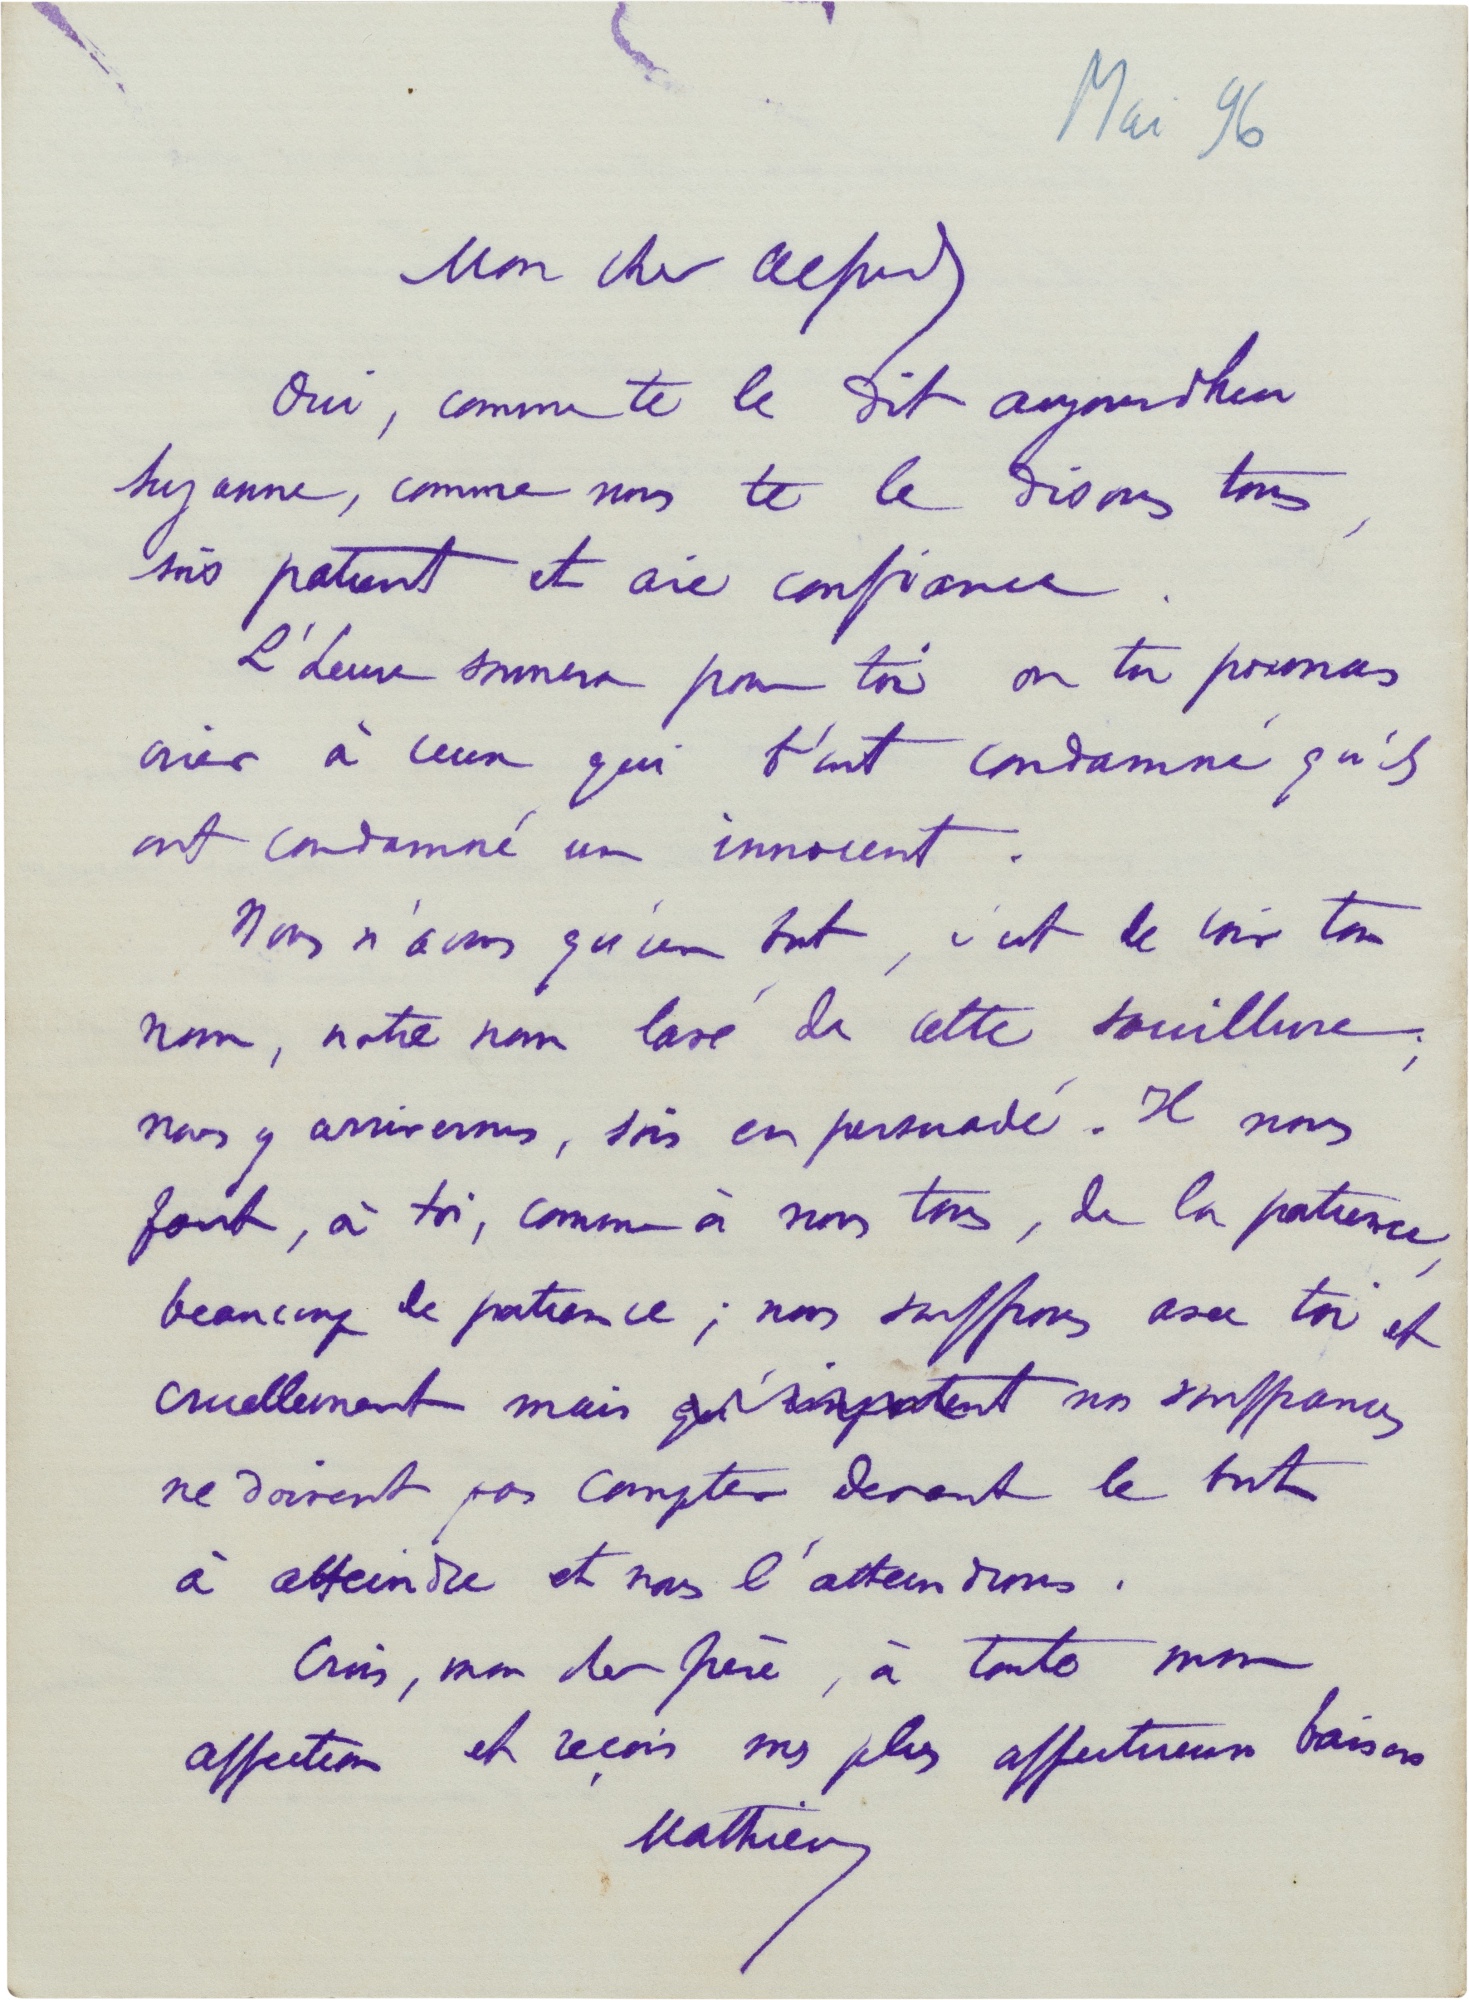 Mai 96
Mon cher Alfred
Oui, comme te le dit aujourd'hui
Suzanne, comme nous te le disons tous,
sois patient et aie confiance.
L'heure sonnera pour toi où tu pourras
crier à ceux qui t'ont condamné qu'ils
ont condamné un innocent.
Nous n'avons qu'un but, c'est de voir ton
nom, notre nom lavé de cette souillure;
nous y arriverons, sois en persuadé. Il nous
faut, à toi, comme à nous tous, de la patience,
beaucoup de patience; nous souffrons avec toi et
cruellement mais qu'importent nos souffrances
ne doivent pas compter devant le but
à atteindre et nous l'atteindrons.
Crois, mon cher frère, à toute mon
affection et reçois mes plus affectueux baisers
Mathieu